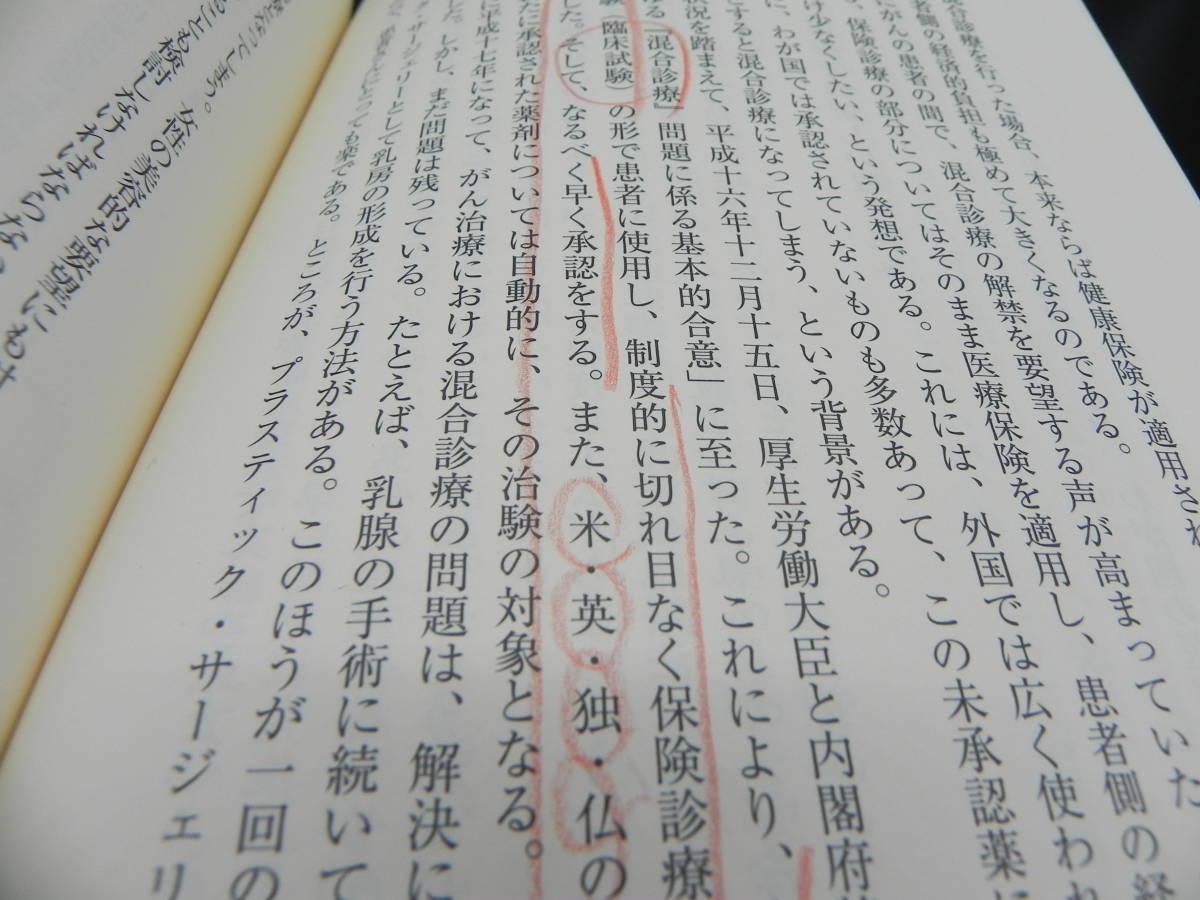 混合診療を行った場合、本来ならば健康保険が適用され
者側の経済的負担も極めて大きくなるのである。
にがんの患者の間で、混合診療の解禁を要望する声が高まっていた
、保険診療の部分についてはそのまま医療保険を適用し、患者側の経
け少なくしたい、という発想である。これには、外国では広く使われ
に、わが国では承認されていないものも多数あって、この未承認薬に
とすると混合診療になってしまう、という背景がある。
状況を踏まえて、平成十六年十二月十五日、厚生労働大臣と内閣府
なる「混合診療」問題に係る基本的合意」に至った。これにより、
験（臨床試験）の形で患者に使用し、制度的に切れ目なく保険診療
した。そして、なるべく早く承認をする。また、米・英・独・仏の
たに承認された薬剤については自動的に、その治験の対象となる。
に平成十七年になって、がん治療における混合診療の問題は、解決に
した。しかし、まだ問題は残っている。たとえば、乳腺の手術に続いて
ク・サージェリーとして乳房の形成を行う方法がある。このほうが一回の
とっても楽である。ところが、プラスティック・サージェリ
なってしまう。女性の美容的な要望にも
ことも検討しなければならない